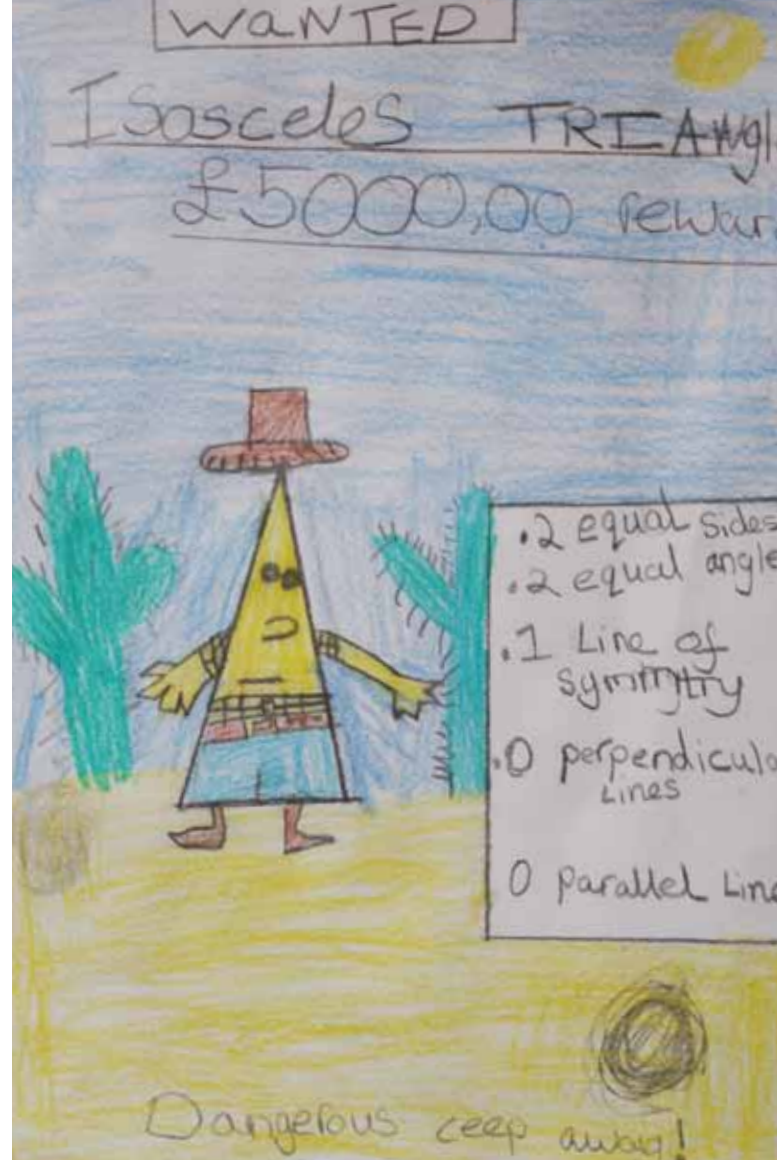 WANTED
Isosceles TRIANgl
£5000,00 rewar
.2 equal sides
.2 equal angle
.1 Line of
symmtry
.0 perpendicula
Lines
0 parallel Line
Dangerous ceep away!